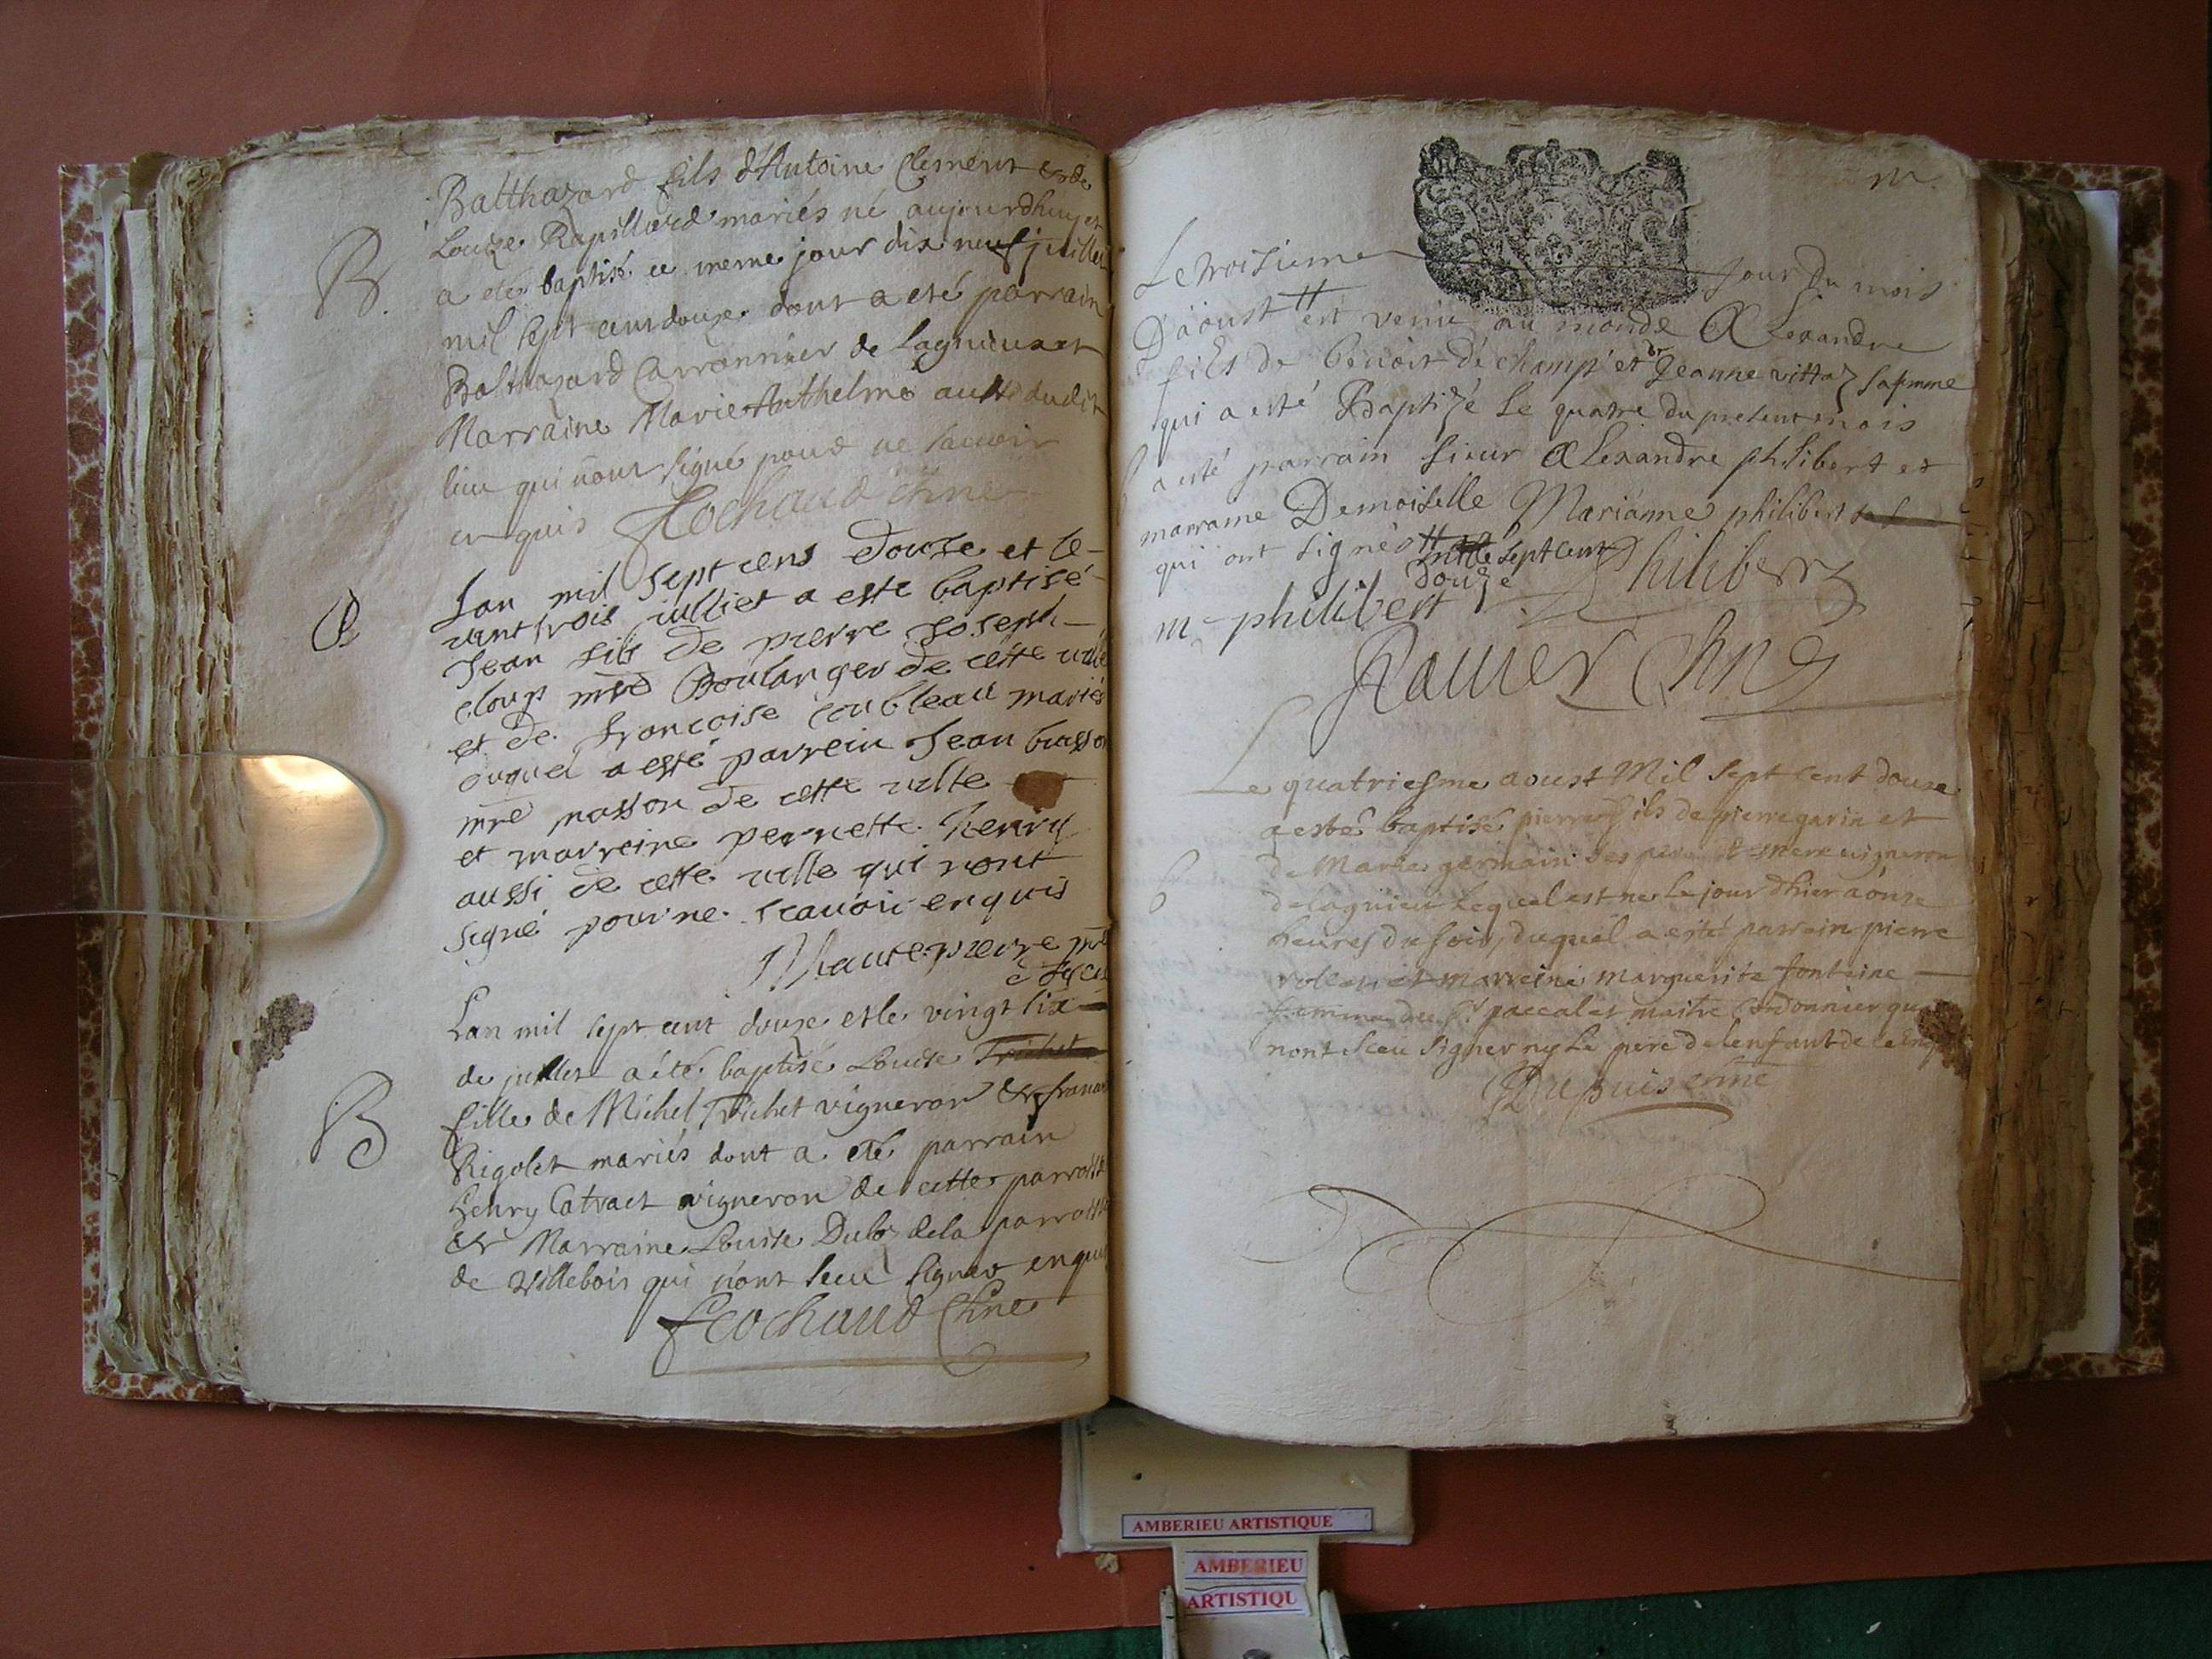 Balthazard fils d'Antoine Clement & de
Louize Rapillard mariés né aujourdhuy et
B. a eté baptisé ce meme jour dix neuf juillet
mil sept cent douze dont a eté parrain
Balthazard Carronnier de Lagnieu et
Marraine Marie Anthelme aussi dudit
lieu qui n'ont signé pour ne scavoir
enquis Cochaud chne
B Lan mil sept cens douse et le
vint trois julliet a este baptisé
Jean fils de pierre Joseph
cloup mre Boulanger de cette ville
et de francoise coubleau mariés
duquel a esté parrein Jean busson
mre masson de cette ville
et marreine pernette henry
aussi de cette ville qui nont
signé pour ne scavoir enquis
hautepierre
Lan mil sept cent douze et le vingt six
de juillet a été baptisé Louise Trichet
B fille de Michel Trichet vigneron & françoise
Rigolet mariés dont a eté parrain
henry Catract vigneron de cette parroisse
& Marraine Louise Dubo de la parroisse
de Villebois qui n'ont sceu signer enquis
Cochaud Chne
m.
Le troisieme jour du mois
D'aoust est venu au monde Alexandre
fils de benoit déchamp et de Jeanne vittoz safemme
qui a esté Baptizé le quatre du present mois
a esté parrain sieur Alexandre philibert et
marraine Demoiselle Marianne philibert
qui ont signés mille sept cent
douze
m philibert Philibert
Ravier Chne
Le quatriesme aoust Mil sept cent douze
a esté baptisé pierre fils de pierre garin et
de Marie germain ses pere & mere vigneron
B de lagnieu lequel est ne le jour d'hier a onze
heures du soir, duquel a esté parrein pierre
rolen et marreine marguerite fonteine
femme du Sr paccalet maitre Cordonnier qui
nont sceu signer ny le pere de lenfant de ce enquis
Dupuis chne
AMBERIEU ARTISTIQUE
AMBERIEU
ARTISTIQU